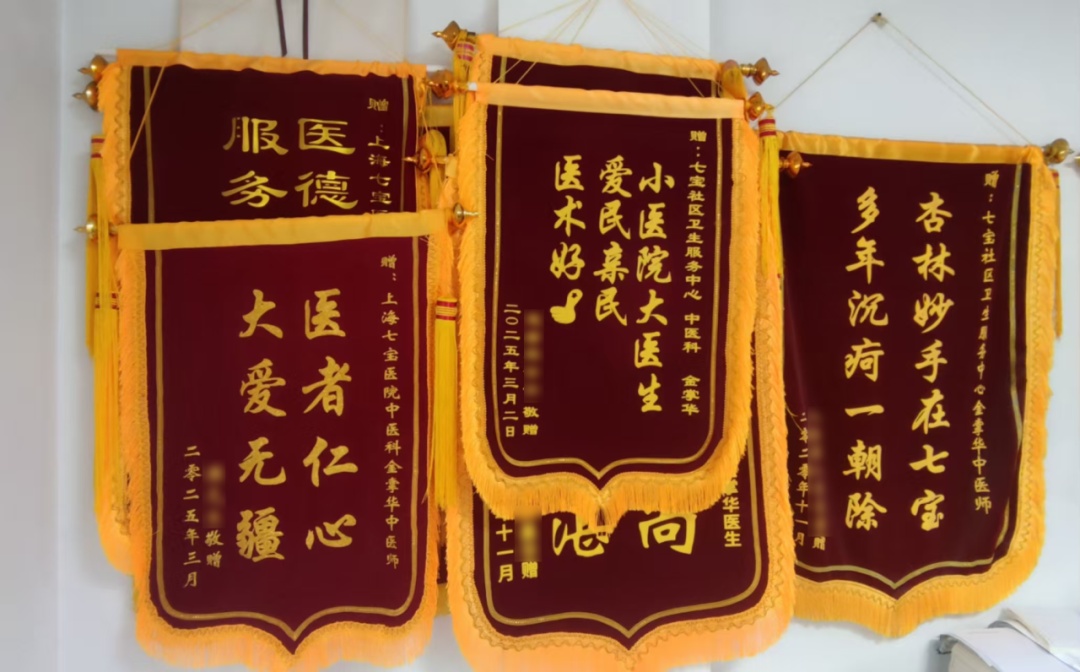 赠：上海七宝
医德
服务
赠：上海七宝医院中医科金掌华中医师
医者仁心
大爱无疆
敬赠
二零二五年三月
赠：七宝社区卫生服务中心 中医科 金掌华
小医院大医生
爱民亲民
医术好
敬赠
二〇二五年三月二日
掌华医生
向
赠
十一月
赠：七宝社区卫生服务中心金掌华中医师
杏林妙手在七宝
多年沉疴一朝除
赠
二零二零年十一月